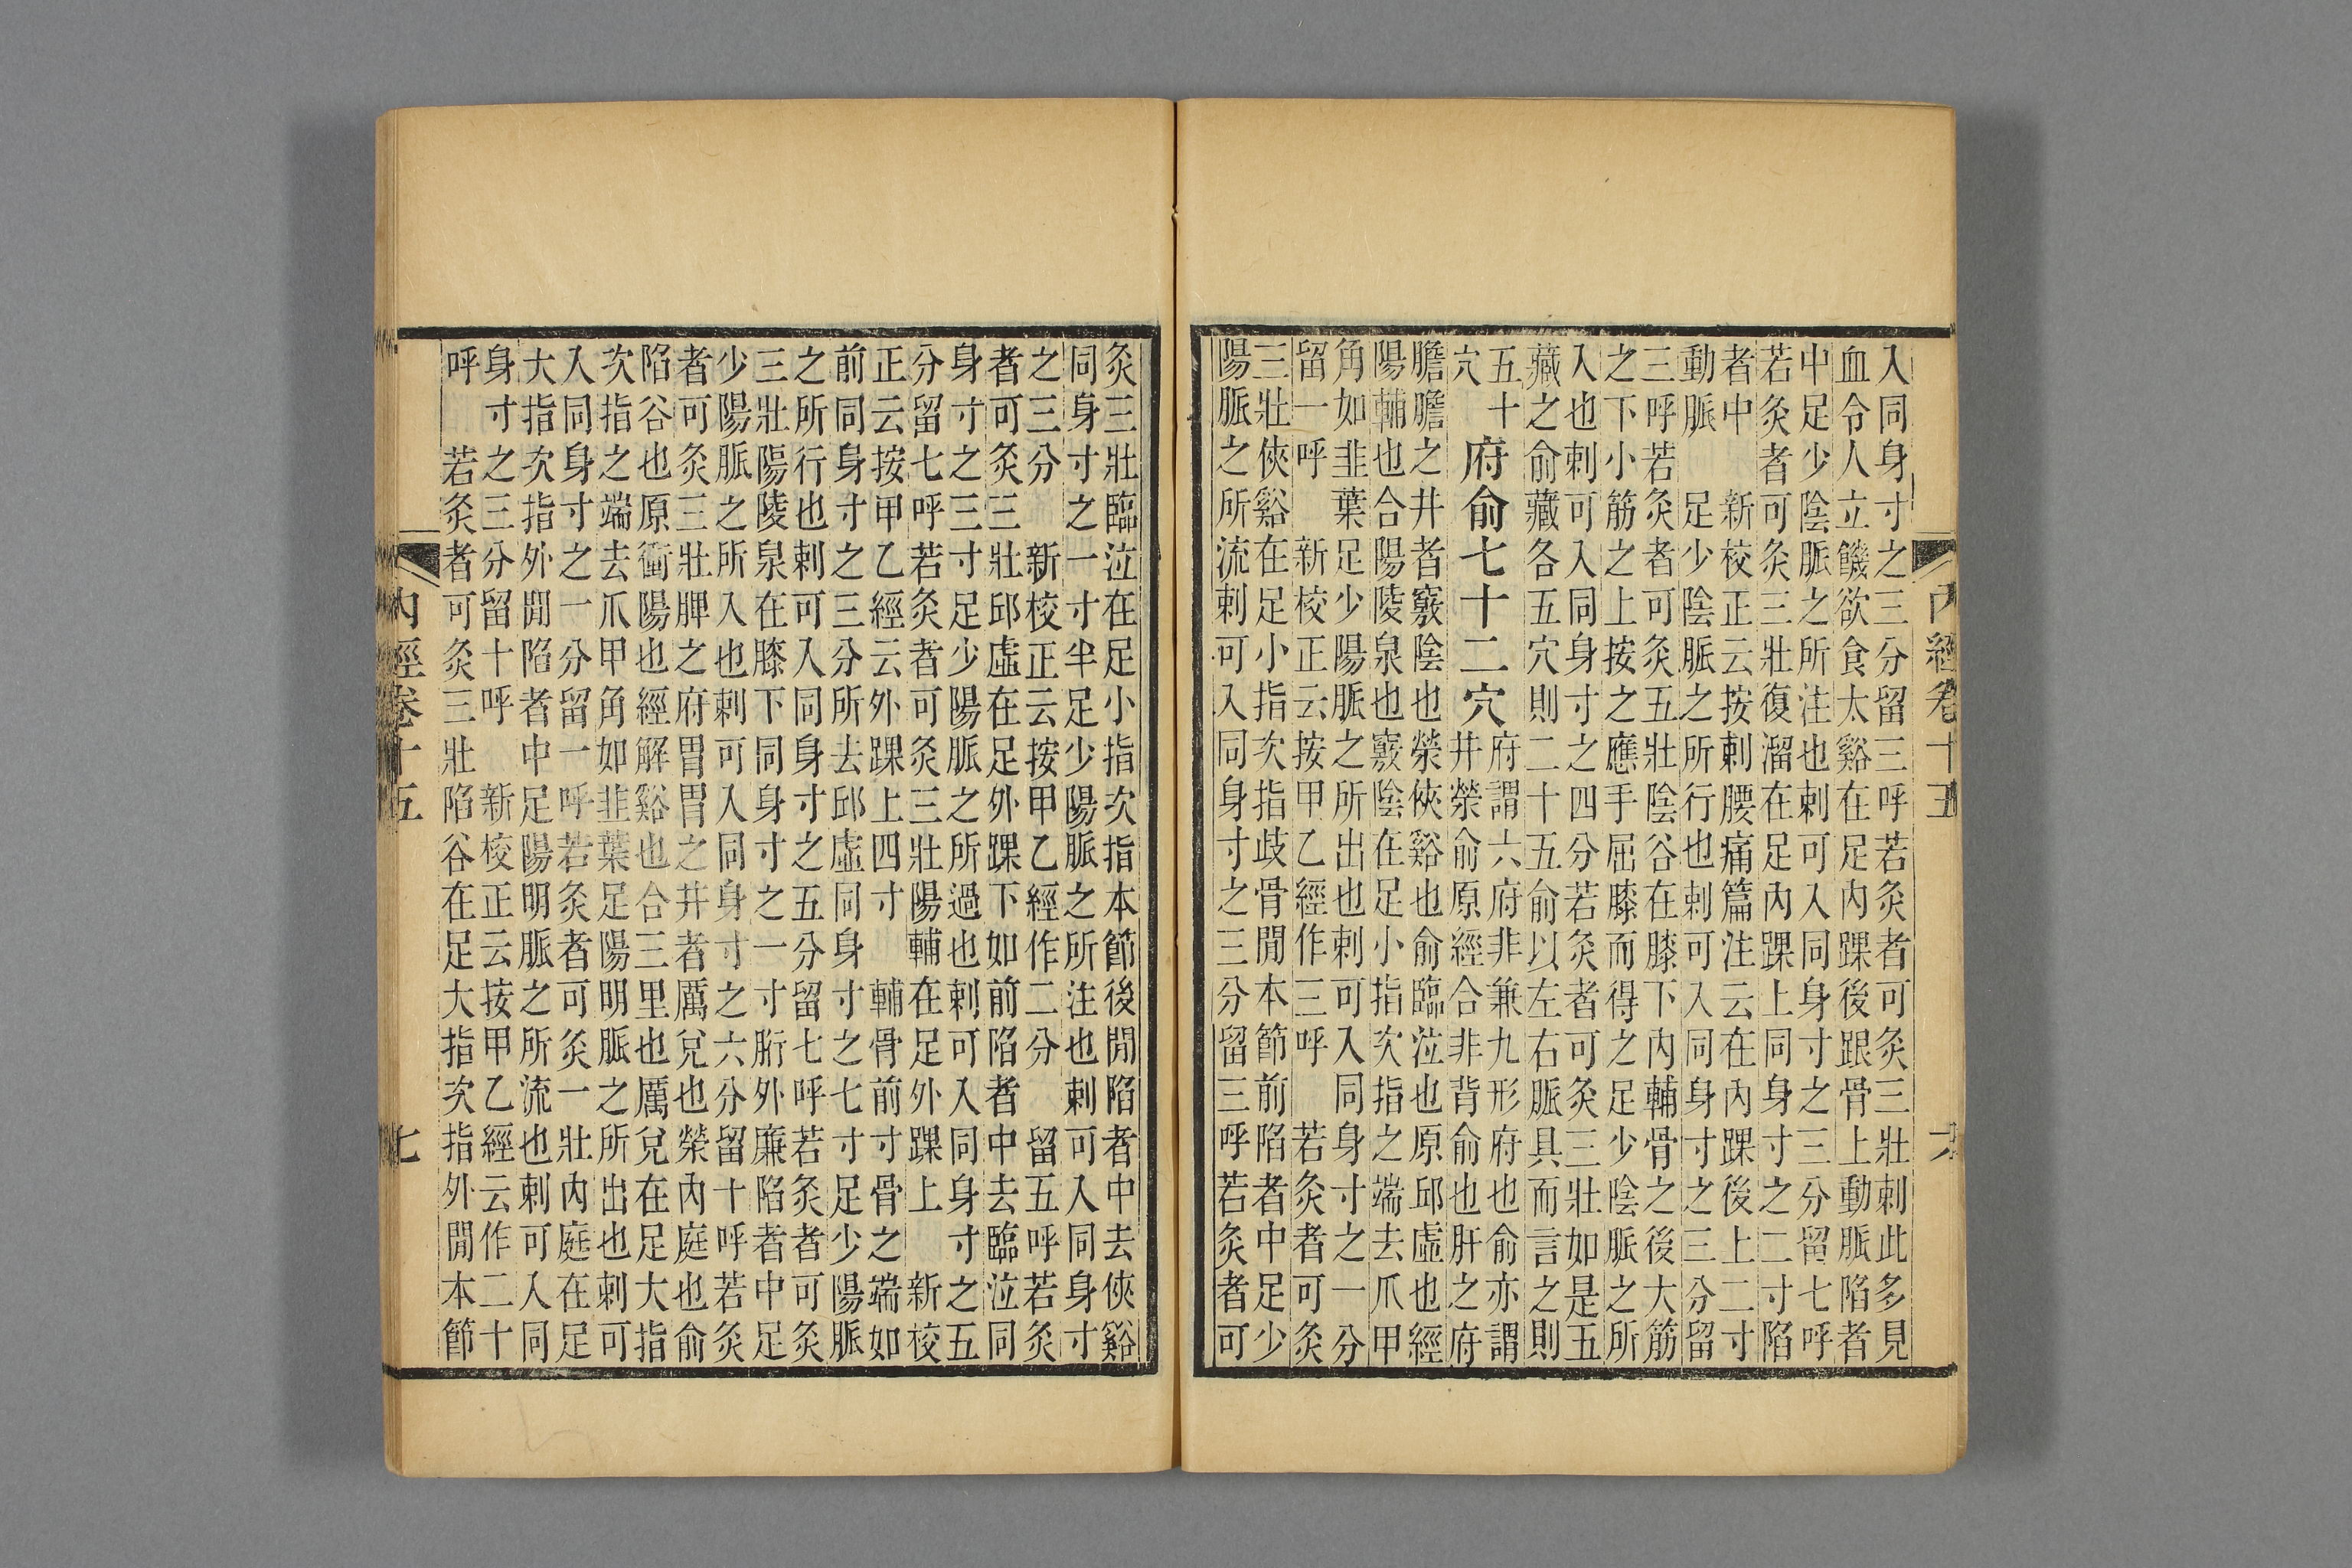 內經卷十五 六
入同身寸之三分留三呼若灸者可灸三壯刺此多見
血令人立饑欲食太谿在足內踝後跟骨上動脈陷者
中足少陰脈之所注也刺可入同身寸之三分留七呼
若灸者可灸三壯復溜在足內踝上同身寸之二寸陷
者中 新校正云按刺腰痛篇注云在內踝後上二寸
動脈 足少陰脈之所行也刺可入同身寸之三分留
三呼若灸者可灸五壯陰谷在膝下內輔骨之後大筋
之下小筋之上按之應手屈膝而得之足少陰脈之所
入也刺可入同身寸之四分若灸者可灸三壯如是五
藏之俞藏各五穴則二十五俞以左右脈具而言之則
五十
穴
府俞七十二穴
府謂六府非兼九形府也俞亦謂
井滎俞原經合非背俞也肝之府
膽膽之井者竅陰也滎俠谿也俞臨泣也原邱虛也經
陽輔也合陽陵泉也竅陰在足小指次指之端去爪甲
角如韭葉足少陽脈之所出也刺可入同身寸之一分
留一呼 新校正云按甲乙經作三呼 若灸者可灸
三壯俠谿在足小指次指歧骨閒本節前陷者中足少
陽脈之所流刺可入同身寸之三分留三呼若灸者可
灸三壯臨泣在足小指次指本節後閒陷者中去俠谿
同身寸之一寸半足少陽脈之所注也刺可入同身寸
之三分 新校正云按甲乙經作二分 留五呼若灸
者可灸三壯邱虛在足外踝下如前陷者中去臨泣同
身寸之三寸足少陽脈之所過也刺可入同身寸之五
分留七呼若灸者可灸三壯陽輔在足外踝上 新校
正云按甲乙經云外踝上四寸 輔骨前寸骨之端如
前同身寸之三分所去邱虛同身寸之七寸足少陽脈
之所行也刺可入同身寸之五分留七呼若灸者可灸
三壯陽陵泉在膝下同身寸之一寸䯒外廉陷者中足
少陽脈之所入也刺可入同身寸之六分留十呼若灸
者可灸三壯脾之府胃胃之井者厲兌也滎內庭也俞
陷谷也原衝陽也經解谿也合三里也厲兌在足大指
次指之端去爪甲角如韭葉足陽明脈之所出也刺可
入同身寸之一分留一呼若灸者可灸一壯內庭在足
大指次指外閒陷者中足陽明脈之所流也刺可入同
身寸之三分留十呼 新校正云按甲乙經云作二十
呼 若灸者可灸三壯陷谷在足大指次指外閒本節
內經卷十五 七